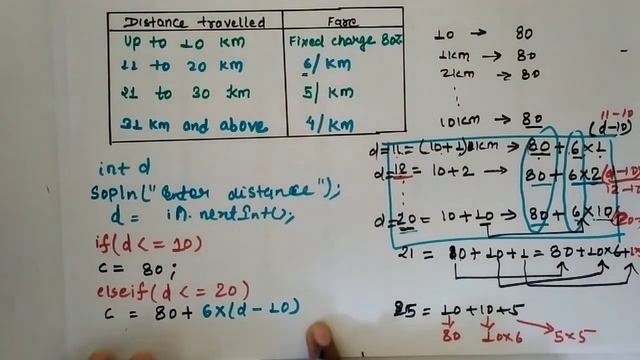 Distance travelled Fare
Up to 10 km Fixed charge 80
11 to 20 km 6/ KM
21 to 30 km 5/ KM
31 KM and above 4/ KM
int d
SOPln("Enter distance");
d = in.nextInt();
if(d <= 10)
c = 80;
elseif(d <= 20)
c = 80 + 6×(d - 10)
10 → 80
1km → 80
2km → 80
10km → 80
11-10
(d-10)
d=11 = (10+1) 1km → 80 + 6×1
d=12 = 10+2 → 80 + 6×2 (d-10)
12-10
d=20 = 10+10 → 80 + 6×10
21 = 10+10+1 = 80+10×6+
25 = 10+10+5
80 10×6 5×5